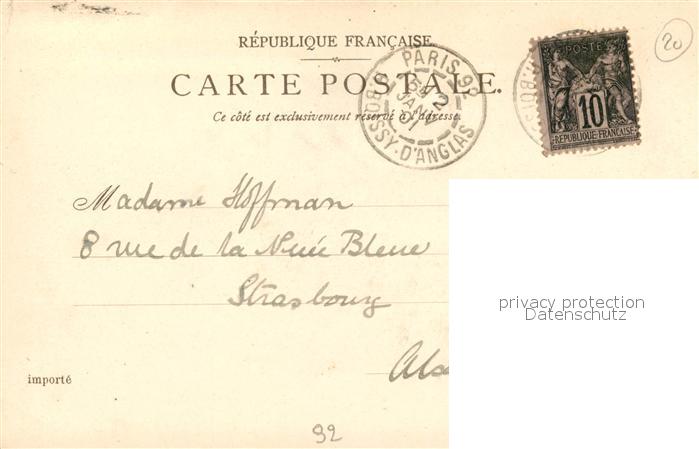 RÉPUBLIQUE FRANÇAISE.
CARTE POSTALE.
Ce côté est exclusivement réservé à l'adresse.
PARIS 9
5E 2
JANV
01
R. BOISSY-D'ANGLAS
POSTE
10
RÉPUBLIQUE FRANÇAISE
20
Madame Hoffman
8 rue de la Nuée Bleue
Strasbourg
Als
privacy protection
Datenschutz
importé
92